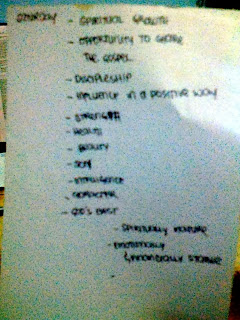 - SPIRITUAL GROWTH
- OPPORTUNITY TO SHARE
THE GOSPEL
- DISCIPLESHIP
- INFLUENCE IN A POSITIVE WAY
- STRENGTH
- HEALTH
- BEAUTY
- INTELLIGENCE
- CHARACTER
- GOD'S BEST
- SPIRITUALLY MATURE
- EMOTIONALLY
& FINANCIALLY STABLE